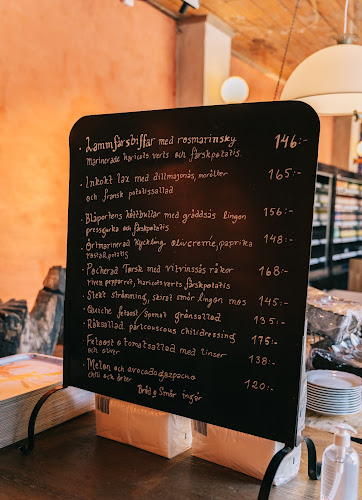 · Lammfärsbiffar med rosmarinsky 146:-
Marinerade haricots verts och färskpotatis.
· Inkokt lax med dillmajonäs, morötter 165:-
och fransk potatissallad
· Blåportens köttbullar med gräddsås lingon 156:-
pressgurka och färskpotatis
· Örtmarinerad kyckling olivcreme, paprika 148:-
rostad potatis
· Pocherad Torsk med vitvinssås räkor 168:-
rivet pepparrot, haricots verts färskpotatis
· Stekt strömming, skirat smör lingon mos 145:-
· Quiche fetaost, spenat grönsallad 135:-
· Räksallad pärlcouscous chilidressing 175:-
· Fetaost o tomatsallad med linser 138:-
och oliver
· Melon och avocadogazpacho 120:-
chili och örter
Bröd o Smör ingår